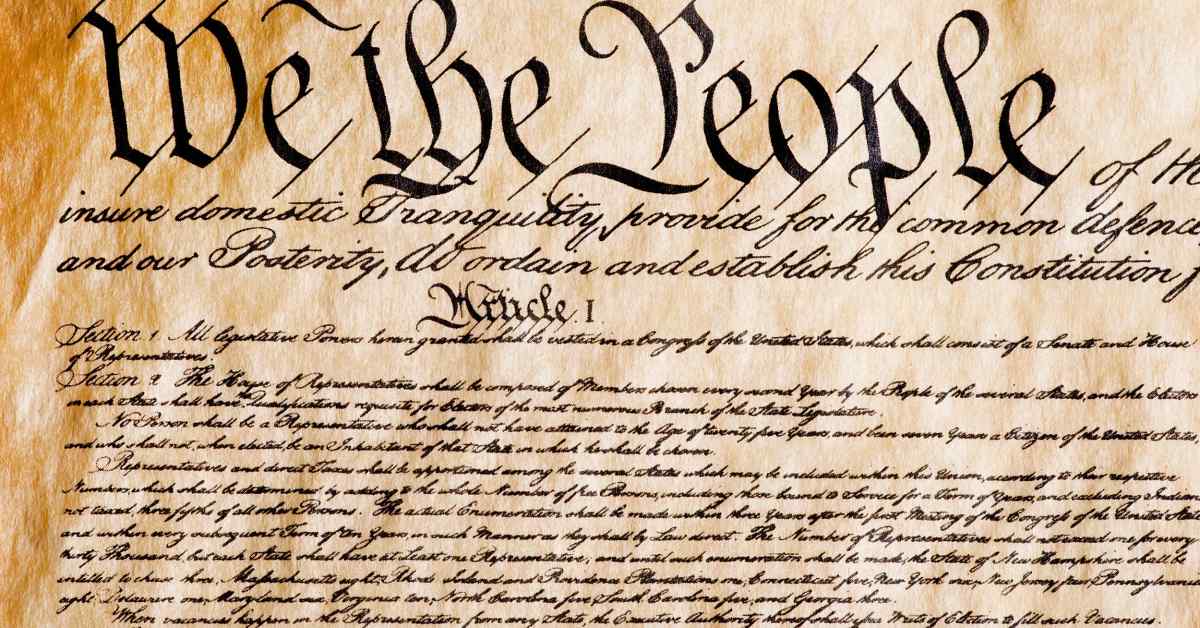 We the People of the
insure domestic Tranquility, provide for the common defence
and our Posterity, do ordain and establish this Constitution f
Article. I.
Section 1. All legislative Powers herein granted shall be vested in a Congress of the United States, which shall consist of a Senate and House
of Representatives.
Section 2. The House of Representatives shall be composed of Members chosen every second Year by the People of the several States, and the Electors
in each State shall have the Qualifications requisite for Electors of the most numerous Branch of the State Legislature.
No Person shall be a Representative who shall not have attained to the Age of twenty five Years, and been seven Years a Citizen of the United States,
and who shall not, when elected, be an Inhabitant of that State in which he shall be chosen.
Representatives and direct Taxes shall be apportioned among the several States which may be included within this Union, according to their respective
Numbers, which shall be determined by adding to the whole Number of free Persons, including those bound to Service for a Term of Years, and excluding Indians
not taxed, three fifths of all other Persons. The actual Enumeration shall be made within three Years after the first Meeting of the Congress of the United States,
and within every subsequent Term of ten Years, in such Manner as they shall by Law direct. The Number of Representatives shall not exceed one for every
thirty Thousand, but each State shall have at least one Representative; and until such enumeration shall be made, the State of New Hampshire shall be
entitled to chuse three, Massachusetts eight, Rhode Island and Providence Plantations one, Connecticut five, New York six, New Jersey four, Pennsylvania
eight, Delaware one, Maryland six, Virginia ten, North Carolina five, South Carolina five, and Georgia three.
When vacancies happen in the Representation from any State, the Executive Authority thereof shall issue Writs of Election to fill such Vacancies.